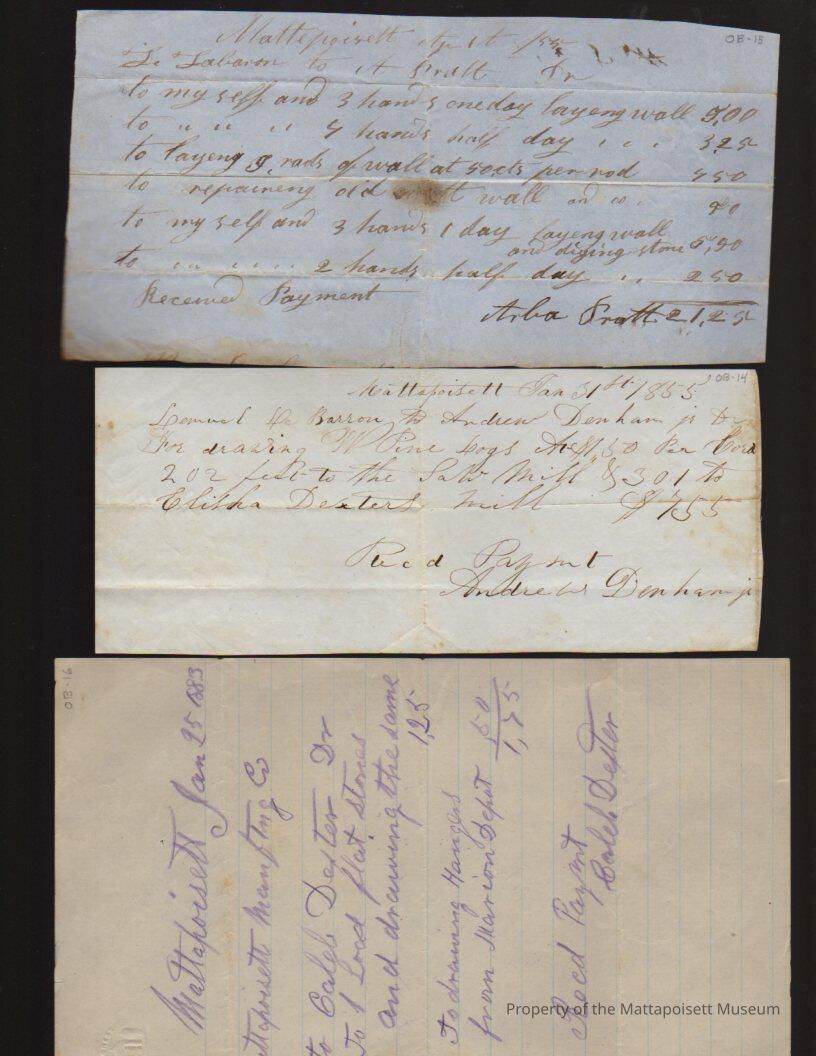 OB-15
Mattepoisett
L. Labaron to A Pratt Dr
to my self and 3 hands one day layeng wall 5,00
to " " " 4 hands half day " " " 3,25
to layeng 9 rods of wall at 50cts per rod 4 50
to repaireng old wall and
to my self and 3 hands 1 day layeng wall
and diging stone
to " " " " 2 hands half day " " 2 50
Received Payment
Arba Pratt 21,25
OB-14
Mattapoisett Jan 31st 1855
Lemuel Le Barron to Andrew Denham jr Dr
For drawing W Pine Logs At $1,50 Per Cord
202 feet to the Saw Mill & 301 to
Elisha Dexters Mill $ 7,55
Recd Paymt
Andrew Denham jr
OB-16
Mattapoisett Jan 25 1883
attapoisett Manftng Co
to Caleb Dexter Dr
To 1 Load flat stones
and drawing the same 1,25
To drawing Hangers
from Marion Depot 50
1,75
Recd Paymt
Caleb Dexter
Property of the Mattapoisett Museum